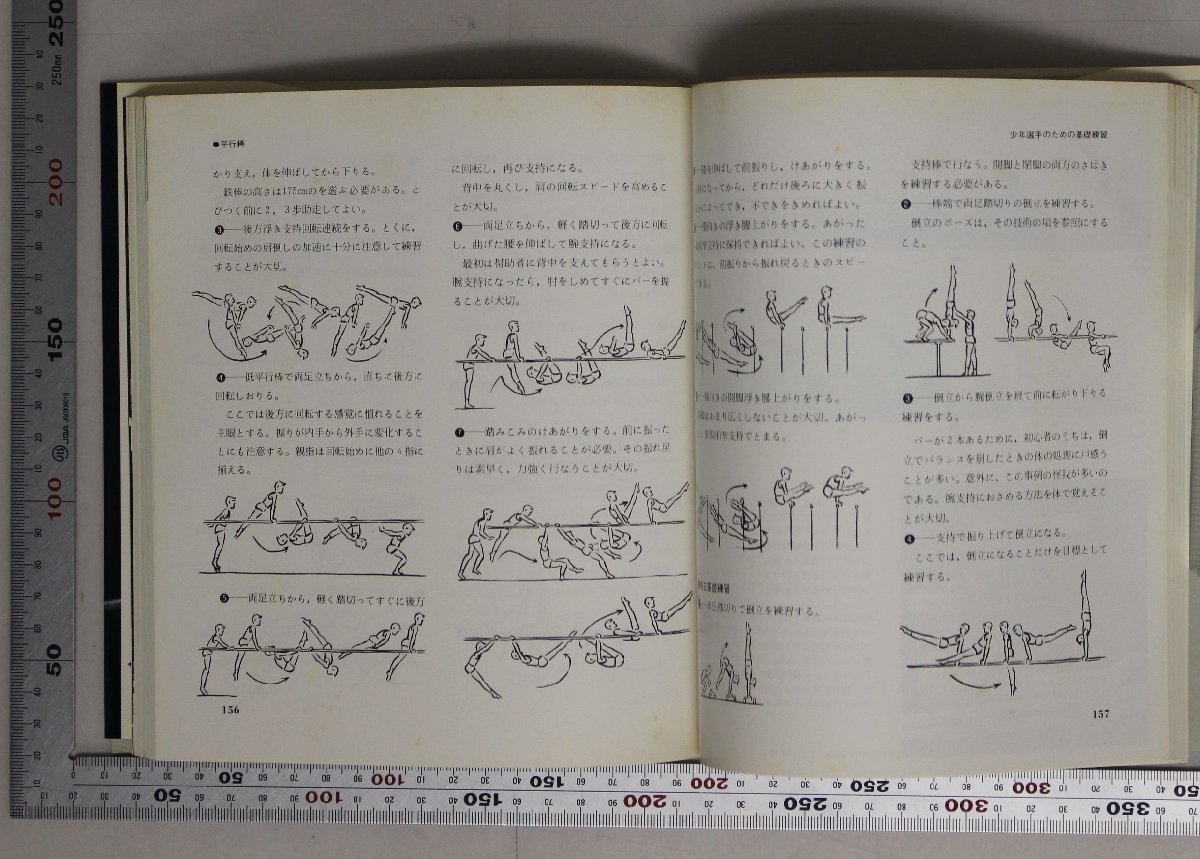 ●平行棒
かり支え，体を伸ばしてから下りる。
鉄棒の高さは175cmのを選ぶ必要がある。こ
びつく前に2，3歩助走してよい。
❸──後方浮き支持回転連続をする。とくに，
回転始めの肩倒しの加速に十分に注意して練習
することが大切。
❹──低平行棒で両足立ちから，直ちに後方に
回転しおりる。
ここでは後方に回転する感覚に慣れることを
主眼とする。握りが内手から外手に変化するこ
とにも注意する。親指は回転始めに他の4指に
揃える。
❺──両足立ちから，軽く踏切ってすぐに後方
156
に回転し，再び支持になる。
背中を丸くし，肩の回転スピードを高めるこ
とが大切。
❻──両足立ちから，軽く踏切って後方に回転
し，曲げた腰を伸ばして腕支持になる。
最初は幇助者に背中を支えてもらうとよい。
腕支持になったら，肘をしめてすぐにバーを握
ることが大切。
❼──踏みこみのけあがりをする。前に振った
ときに肩がよく振れることが必要。その振れ戻
りは素早く，力強く行なうことが大切。
少年選手のための基礎練習
を伸ばして前振りし，けあがりをする。
になってから，どれだけ後ろに大きく振
によってでき，不できをきめればよい。
向きの浮き腰上がりをする。あがった
支持に保持できればよい。この練習の
前振りから振れ戻るときのスピー
ある。
向きの開脚浮き腰上がりをする。
はあまり広くしないことが大切。あがっ
支持でとまる。
基礎練習
踏切りで倒立を練習する。
支持棒で行なう。開脚と閉脚の両方のさばき
を練習する必要がある。
❷──棒端で両足踏切りの倒立を練習する。
倒立のポーズは，その技術の項を参照にする
こと。
❸──倒立から腕倒立を経て前に転がり下りる
練習をする。
バーが2本あるために，初心者のうちは，倒
立でバランスを崩したときの体の処理に戸惑う
ことが多い。意外に，この事例の怪我が多いの
である。腕支持におさめる方法を体で覚えるこ
とが大切。
❹──支持で振り上げて倒立になる。
ここでは，倒立になることだけを目標として
練習する。
157